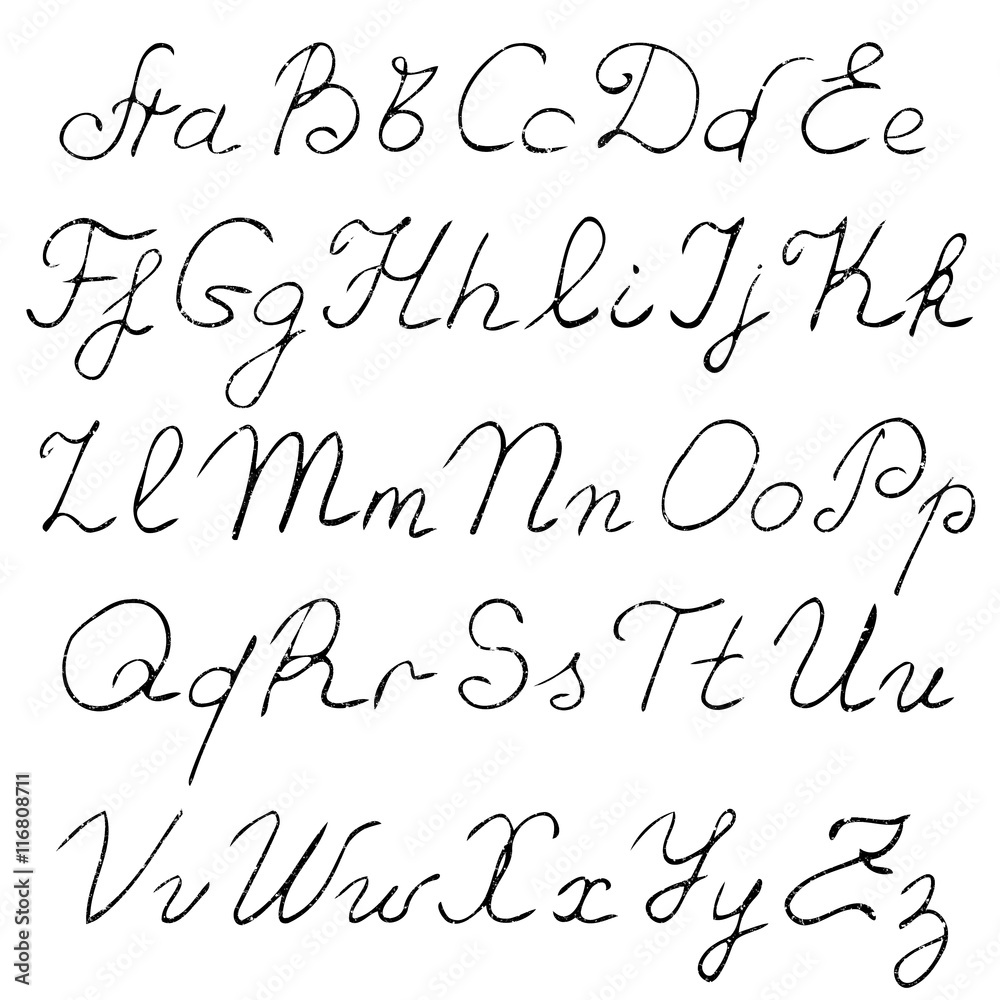 Aa Bb Cc Dd Ee
Ff Gg Hh Ii Jj Kk
Ll Mm Nn Oo Pp
Qq Rr Ss Tt Uu
Vv Ww Xx Yy Zz
Adobe Stock | #116808711